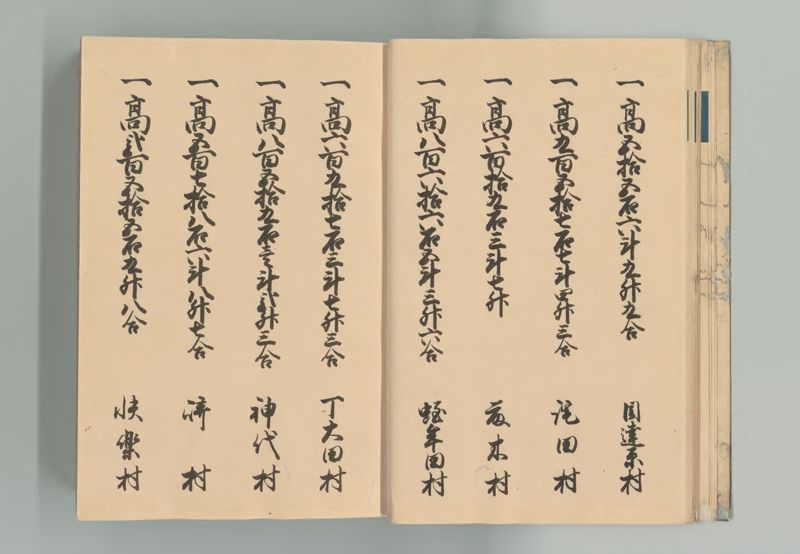 一高五拾五石六斗九升九合 目達原村
一高九百五拾七石七斗四升三合 田村
一高六百拾九石三斗七升 木村
一高八百六拾六石五斗三升六合 蛭牟田村
一高六百九拾七石三斗七升三合 丁大田村
一高八百五拾九石壱斗弐升三合 神代村
一高五百七拾八石六斗八升七合 村
一高弐百五拾五石九升八合 快樂村